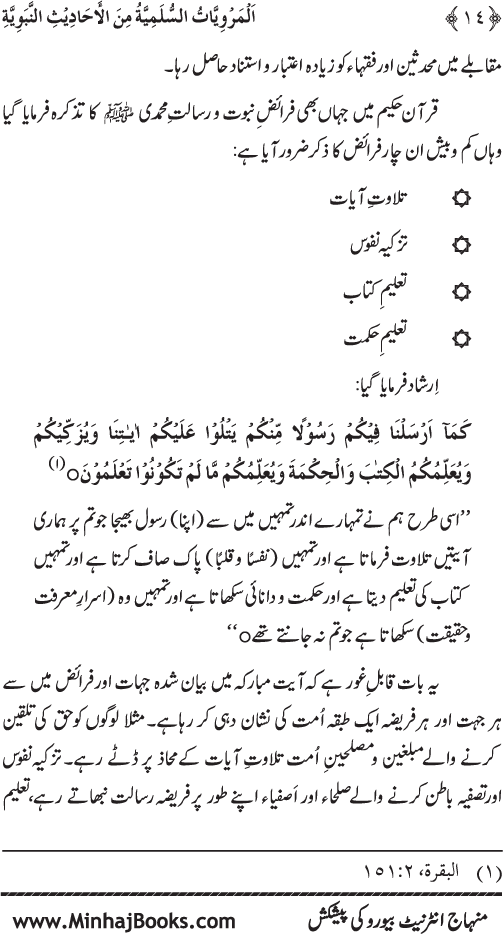 ﴿١٤﴾ اَلْمَرْوِیَّاتُ السُّلَمِیَّةُ مِنَ الْاَحَادِیْثِ النَّبَوِیَّةِ
مقابلے میں محدثین اور فقہاء کو زیادہ اعتبار و استناد حاصل رہا۔
قرآن حکیم میں جہاں بھی فرائضِ نبوت و رسالتِ محمدی ﷺ کا تذکرہ فرمایا گیا
وہاں کم و بیش ان چار فرائض کا ذکر ضرور آیا ہے:
۞ تلاوتِ آیات
۞ تزکیہ نفوس
۞ تعلیمِ کتاب
۞ تعلیمِ حکمت
اِرشاد فرمایا گیا:
کَمَآ اَرْسَلْنَا فِیْکُمْ رَسُوْلًا مِّنْکُمْ یَتْلُوْا عَلَیْکُمْ اٰیٰتِنَا وَیُزَکِّیْکُمْ
وَیُعَلِّمُکُمُ الْکِتٰبَ وَالْحِکْمَةَ وَیُعَلِّمُکُمْ مَّا لَمْ تَکُوْنُوْا تَعْلَمُوْنَo(۱)
’’اسی طرح ہم نے تمہارے اندر تمہیں میں سے (اپنا) رسول بھیجا جو تم پر ہماری
آیتیں تلاوت فرماتا ہے اور تمہیں (نفسًا و قلبًا) پاک صاف کرتا ہے اور تمہیں
کتاب کی تعلیم دیتا ہے اور حکمت و دانائی سکھاتا ہے اور تمہیں وہ (اسرارِ معرفت
و حقیقت) سکھاتا ہے جو تم نہ جانتے تھےo‘‘
یہ بات قابلِ غور ہے کہ آیت مبارکہ میں بیان شدہ جہات اور فرائض میں سے
ہر جہت اور ہر فریضہ ایک طبقہ اُمت کی نشان دہی کر رہا ہے۔ مثلا لوگوں کو حق کی تلقین
کرنے والے مبلغین و مصلحینِ اُمت تلاوتِ آیات کے محاذ پر ڈٹے رہے۔ تزکیہ نفوس
اور تصفیہ باطن کرنے والے صلحاء اور اَصفیاء اپنے طور پر فریضہ رسالت نبھاتے رہے، تعلیم
(۱) البقرۃ، ۲:۱۵۱
منہاج انٹرنیٹ بیورو کی پیشکش www.MinhajBooks.com